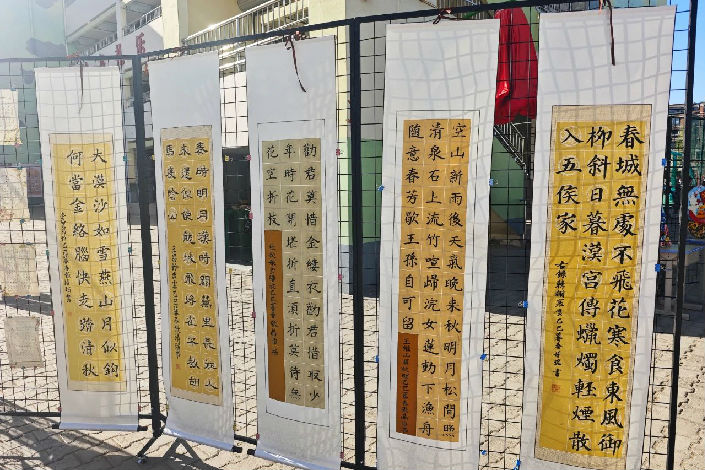 春城無處不飛花寒食東風御
柳斜日暮漢宮傳蠟燭輕煙散
入五侯家
空山新雨後天氣晚來秋明月松間照
清泉石上流竹喧歸浣女蓮動下漁舟
隨意春芳歇王孫自可留
王維山居秋暝
勸君莫惜金縷衣勸君惜取少
年時花開堪折直須折莫待無
花空折枝
秦時明月漢時關萬里長征人
未還但使龍城飛將在不教胡
馬度陰山
大漠沙如雪燕山月似鉤
何當金絡腦快走踏清秋